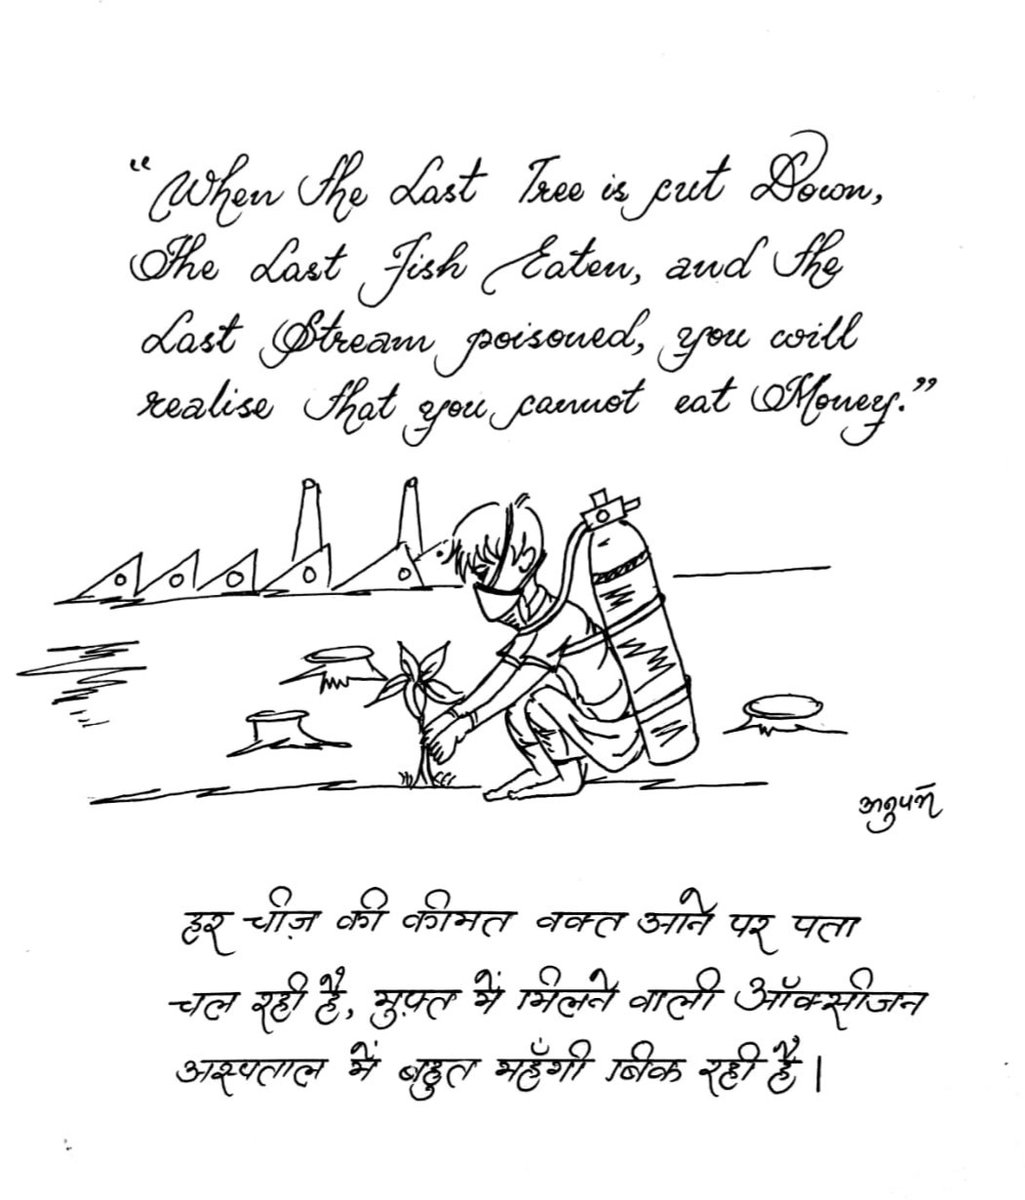 “When the Last Tree is cut Down,
The Last Fish Eaten, and the
Last Stream poisoned, you will
realise that you cannot eat Money.”
अनुपम
हर चीज़ की कीमत वक्त आने पर पता
चल रही है, मुफ़्त में मिलने वाली ऑक्सीजन
अस्पताल में बहुत महँगी बिक रही है।